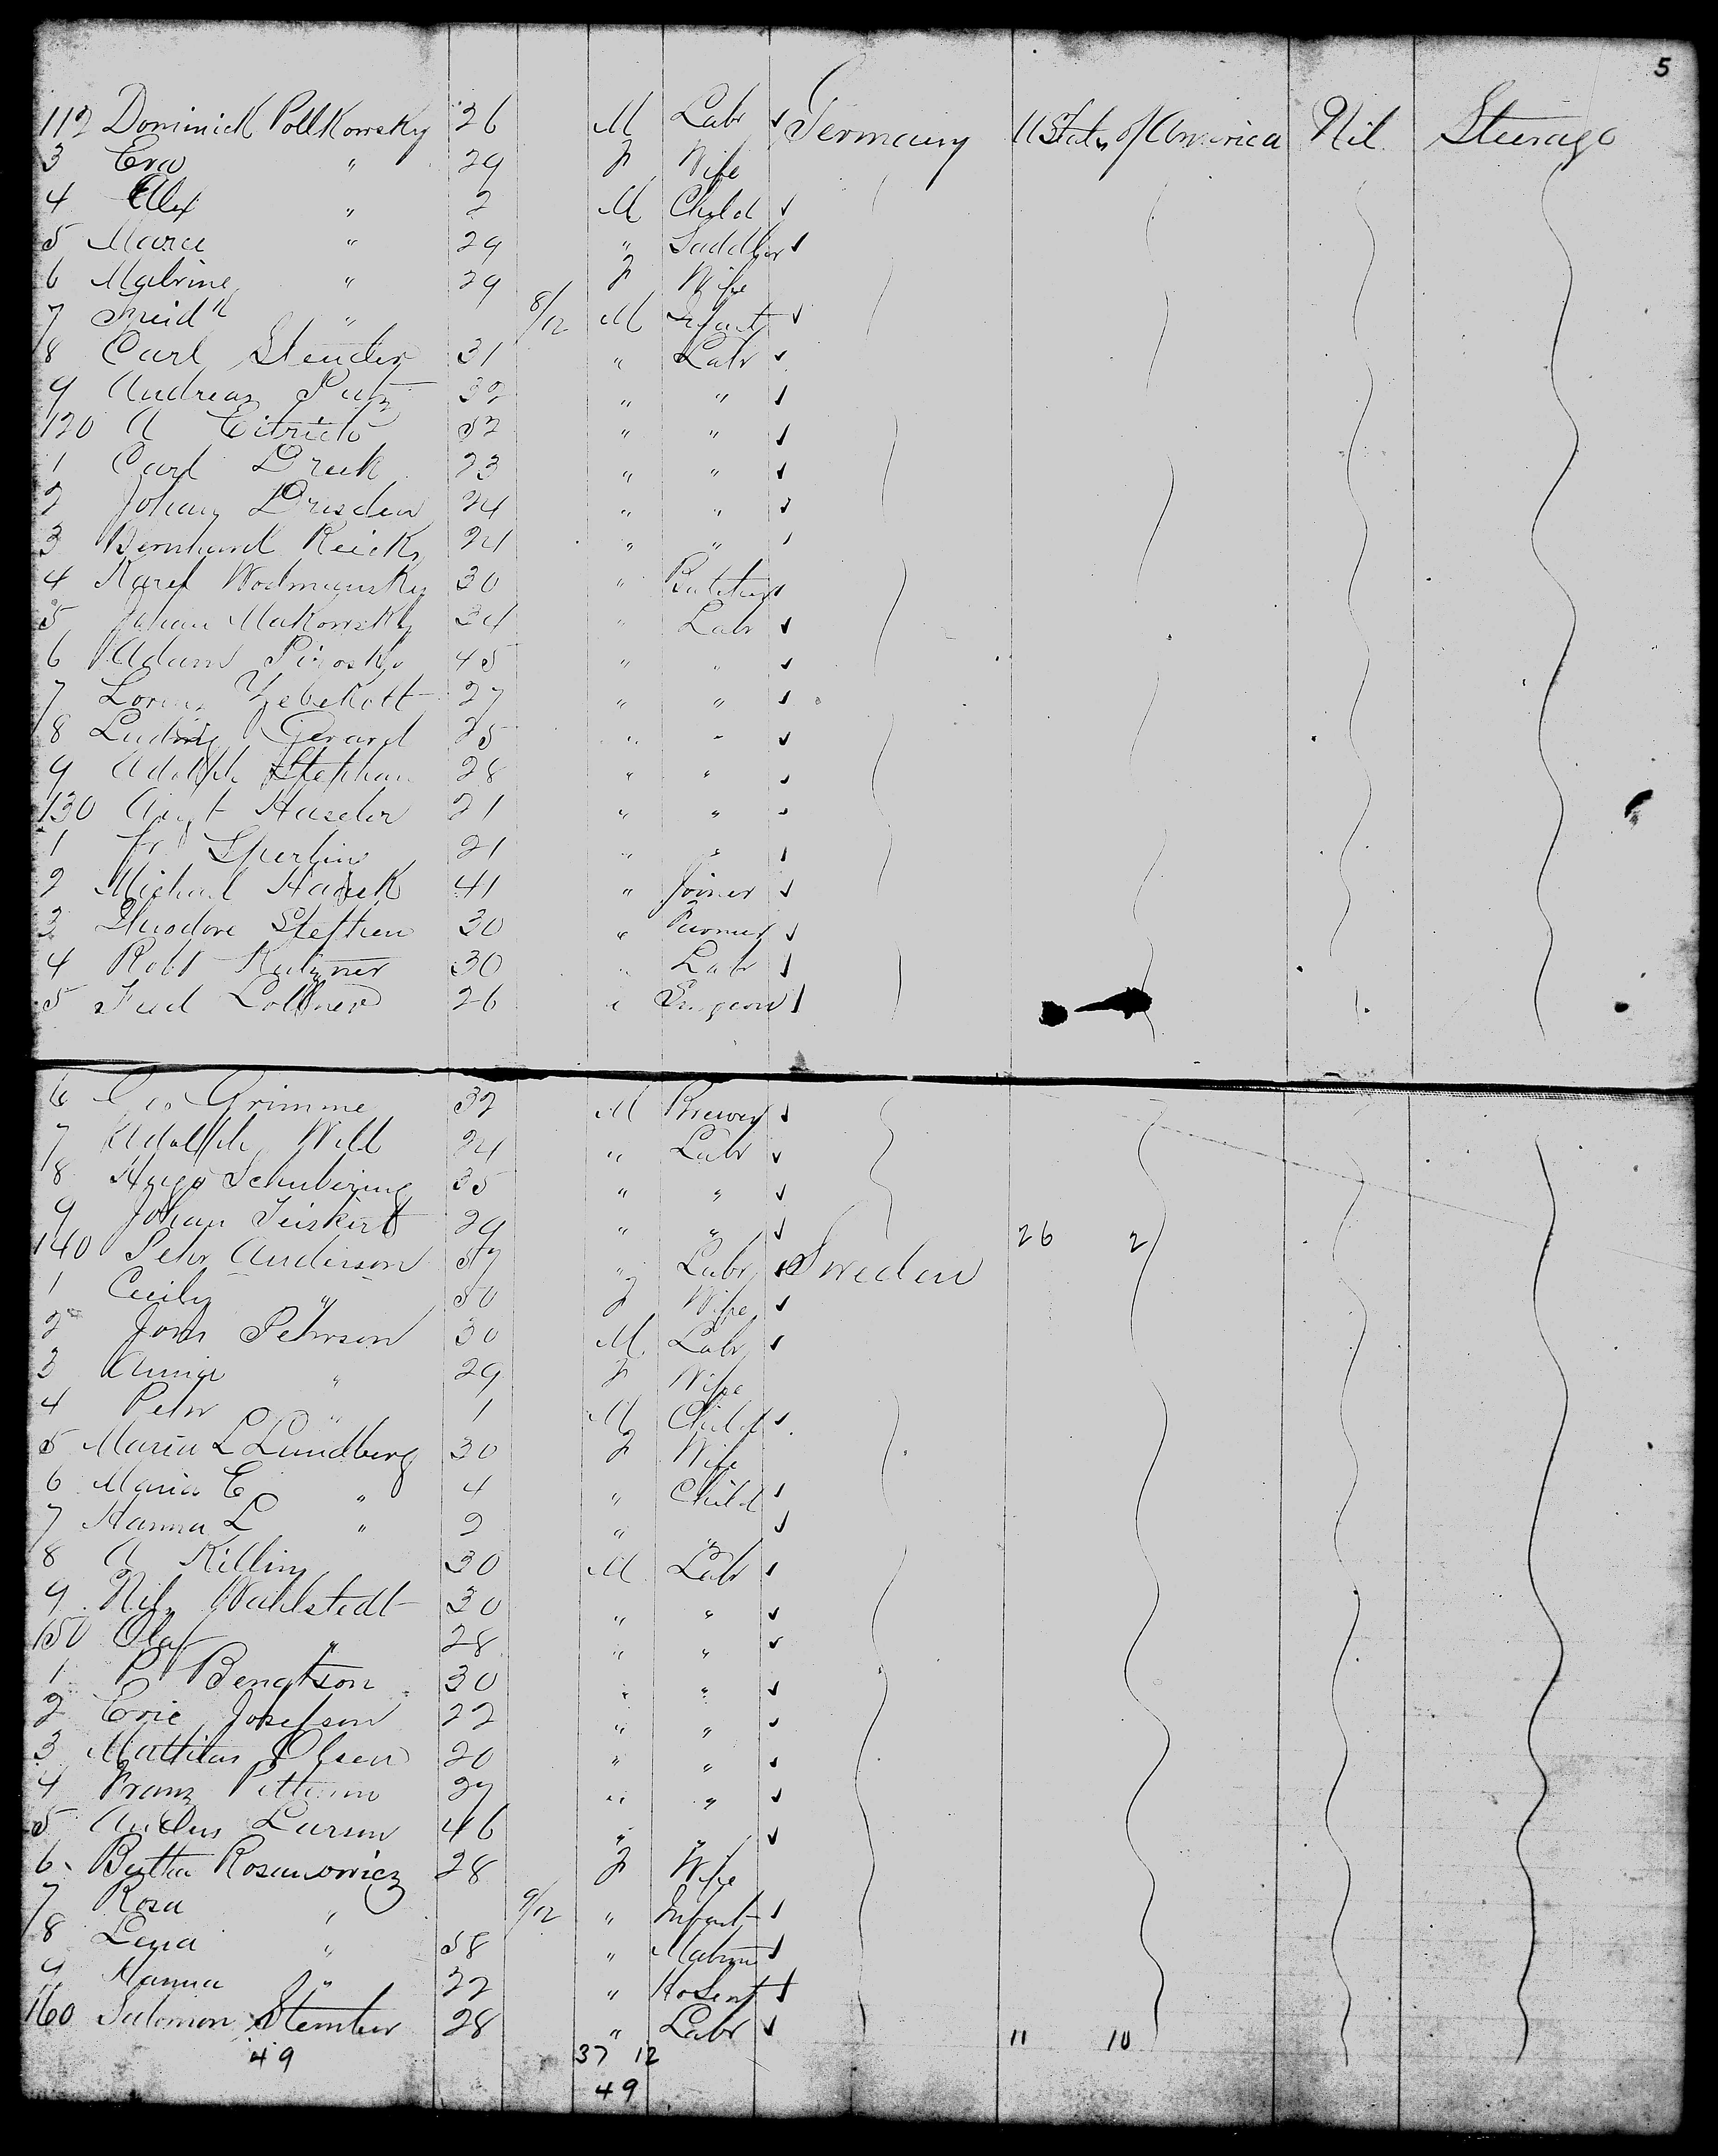 5
112 Dominick Pollkowsky 26 M Labr ✓ Germany U States of America Nil Steerage
3 Eva " 29 F Wife
4 Alex " 2 M Child ✓
5 " 29 " Saddler ✓
6 " 29 F Wife
7 Freidk " 8/12 M Infant ✓
8 Carl Steuder 31 " Labr ✓
9 Andreas Putz 32 " " ✓
120 A 32 " " ✓
1 Carl Dreck 23 " " ✓
2 Johan Dresden 24 " " ✓
3 Bernhard Reicks 24 " " ✓
4 Karel 30 " Butcher ✓
5 Johan Makowsky 34 " Labr ✓
6 Adam 45 " " ✓
7 Lorenz 27 " " ✓
8 Ludwig Gerard 25 " " ✓
9 Adolph Stephan 28 " " ✓
130 Augt Haseler 21 " " ✓
1 Fr Sperling 21 " " ✓
2 Michael 41 " Joiner ✓
3 Theodore Steffien 30 " Farmer ✓
4 Robt 30 " Labr ✓
5 Ferd Lollner 26 " Surgeon ✓
6 Grimme 32 M Brewer ✓
7 Adolph Will 24 " Labr ✓
8 Hugo Schubering 35 " " ✓
9 Johan 29 " " ✓ 26 2
140 Pehr Anderson 57 " Labr ✓ Sweden
1 Cecily " 50 F Wife ✓
2 Jons Pehrson 30 M Labr ✓
3 Anna " 29 F Wife
4 Pehr " 1 M Child ✓
5 Maria L Lundberg 30 F Wife
6 Maria E " 4 " Child ✓
7 Hanna L " 2 " " ✓
8 A Killing 30 M Labr ✓
9 Nils Wahlstedt 30 " " ✓
150 Olaf " 28 " " ✓
1 P Bengtson 30 " " ✓
2 Eric Josefson 22 " " ✓
3 Mattias Olsen 20 " " ✓
4 Franz 27 " " ✓
5 Anders Larsen 46 " " ✓
6 Bertha Rosanowicz 28 F Wife
7 Rosa " 9/12 " Infant ✓
8 Lena " 58 " Matron ✓
9 Hanna " 22 " HoServt ✓
160 Salomon Stember 28 " Labr ✓ 11 10
49 37 12
49